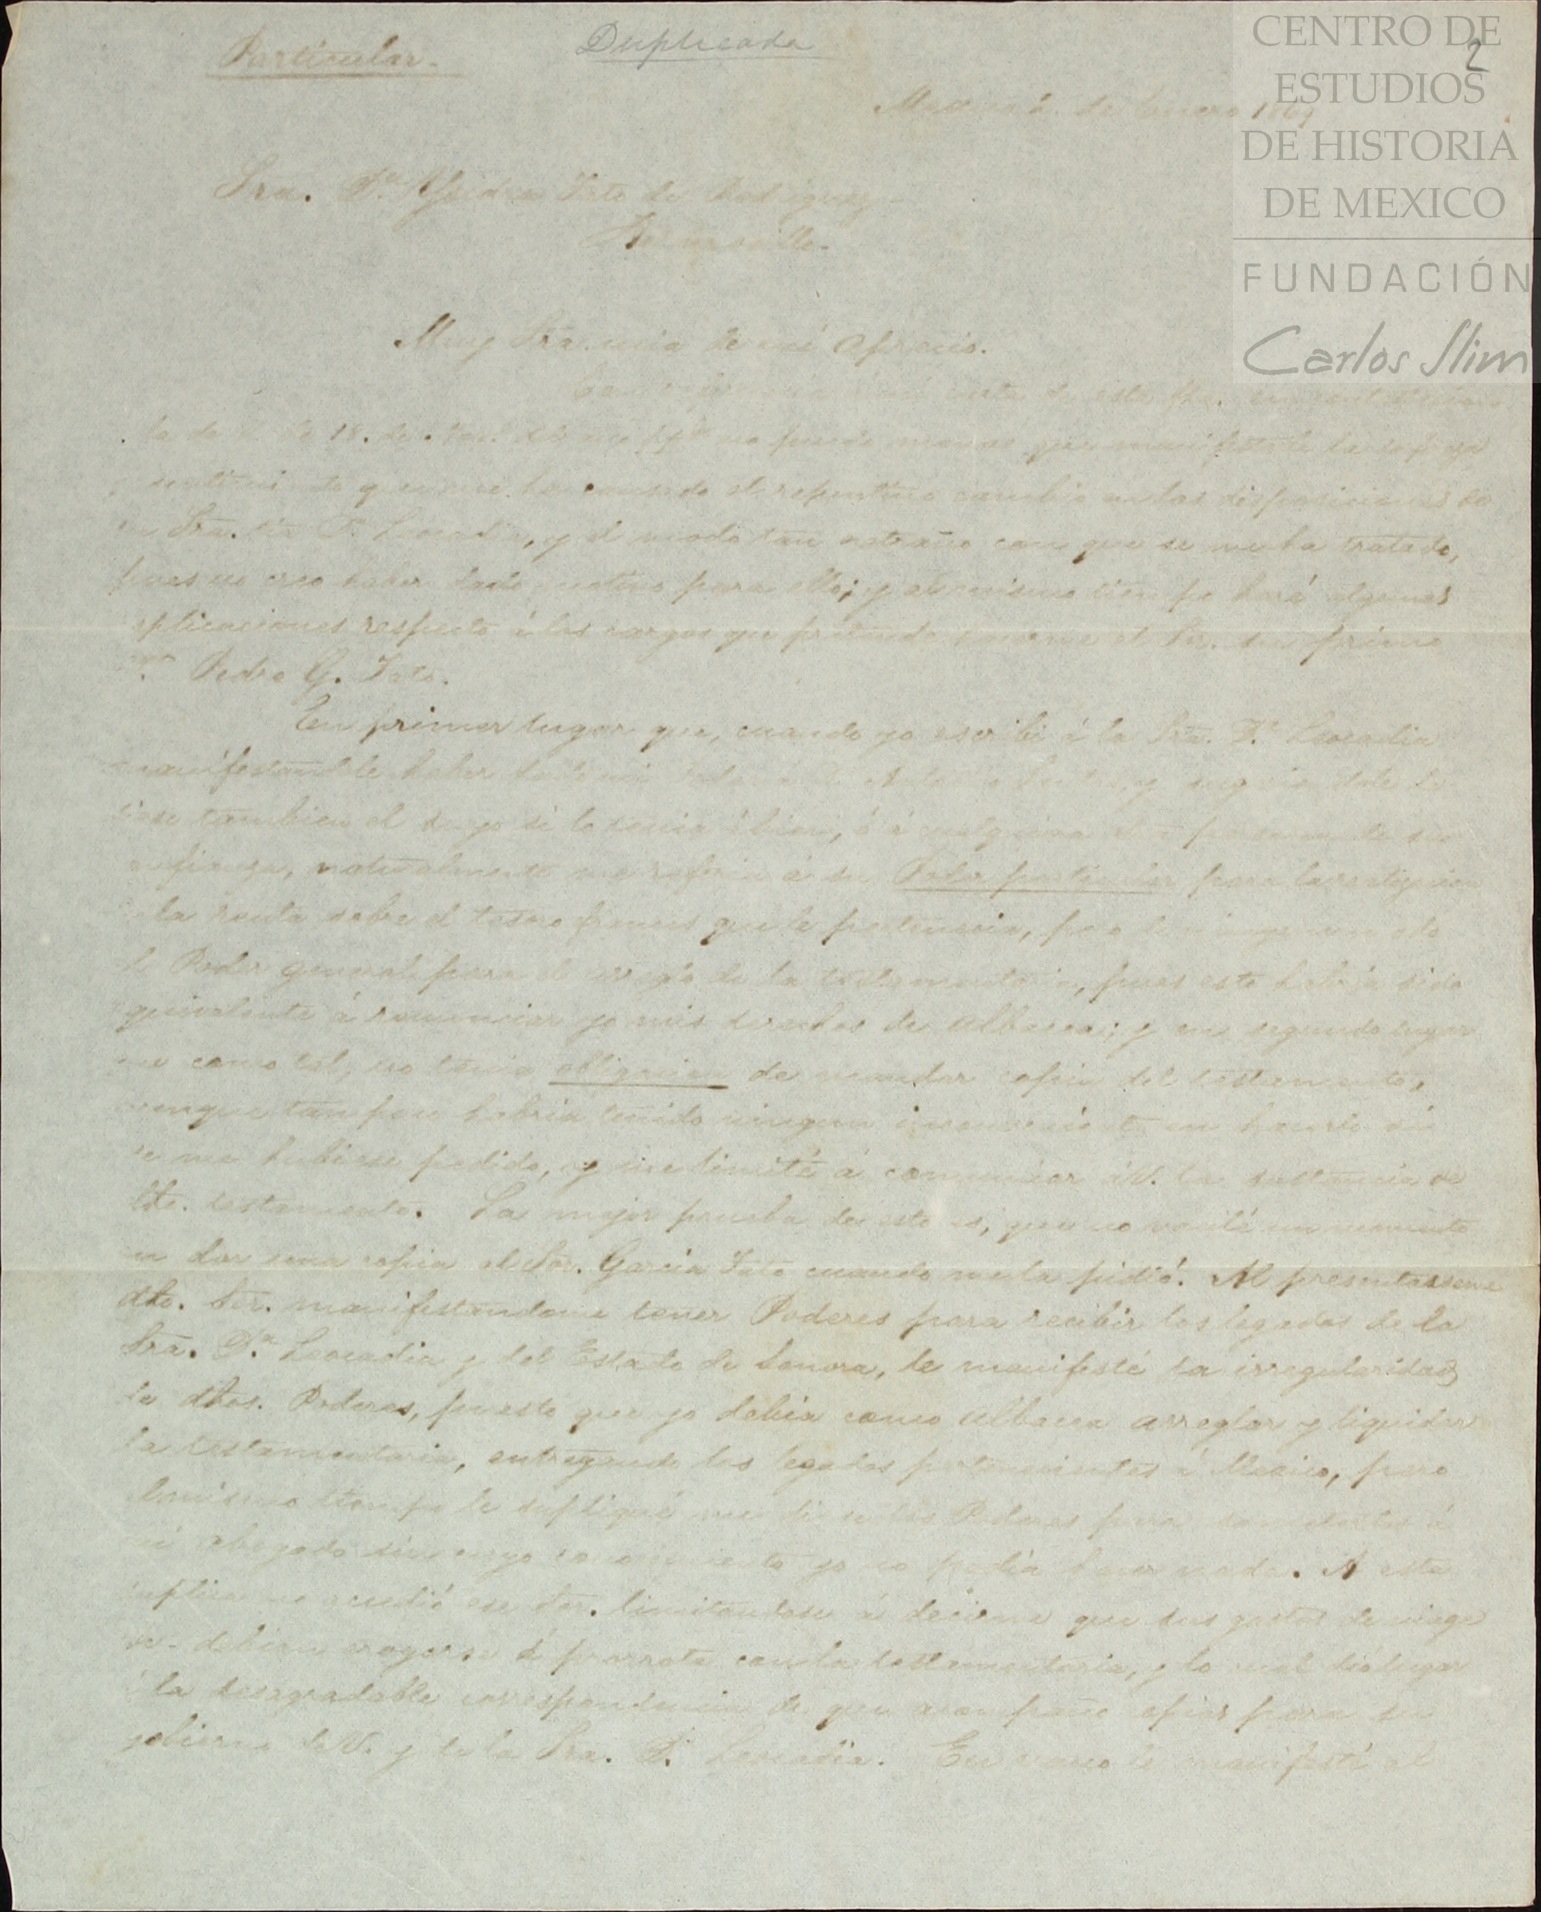 Particular.
Duplicada
2
CENTRO DE
ESTUDIOS
DE HISTORIA
DE MEXICO
FUNDACIÓN
Carlos Slim
2. de Enero 1869
Sra. Da. Ysidra Tato de Rodriguez
Hermosillo.
Muy Sra. mia de mi aprecio.
carta de esta fha. en contestacion
la de V. de 18. de no puedo menos que manifestarle la sorpresa
y sentimiento que me ha causado el repentino cambio en las disposiciones de
Sra. tia Da. Leocadia, y el modo tan estraño con que se me ha tratado,
pues no creo haber dado motivo para ello; y al mismo tiempo hará algunas
esplicaciones respecto á los cargos que pretende hacerme el Sr. su primo
Dn. Pedro G. Tato.
En primer lugar que, cuando yo escribi á la Sra. Da. Leocadia
manifestandole haber dado mi y sugiriendole
diese tambien el suyo si lo tenia á bien, ó á cualquiera otra persona de su
confianza, naturalmente me referia á su Poder particular para la realizacion
la renta sobre el tesoro frances que le pertenecia, pero de ningun modo
Poder general para el arreglo de la testamentaria, pues esto habria sido
equivalente á renunciar yo mis derechos de albacea; y en segundo lugar
que como tal, no tenia obligacion de mandar copia del testamento,
aunque tampoco habria tenido ningun inconveniente en hacerlo si
se me hubiese pedido, y me limité á comunicar á V. la sustancia de
dho. testamento. La mejor prueba de esto es, que no vacilé un momento
en dar una copia al Sor. Garcia Tato cuando me la pidió. Al presentarseme
dho. Sor. manifestandome tener Poderes para recibir los legados de la
Sra. Da. Leocadia y del Estado de Sonora, le manifesté la irregularidad
de dhos. Poderes, puesto que yo debia como albacea arreglar y liquidar
la testamentaria, entregando los legados pertenecientes á Mexico, pero
al mismo tiempo le supliqué me diese los Poderes para someterlos á
mi abogado sin cuyo conocimiento yo no podia hacer nada. A esta
suplica no accedió ese Sor. limitandose á decirme que sus gastos de viage
debian erogarse á prorrata con la testamentaria, y lo cual dió lugar
á la desagradable correspondencia de que acompaño copias para su
gobierno de V. y de la Sra. Da. Leocadia. En le manifesté al